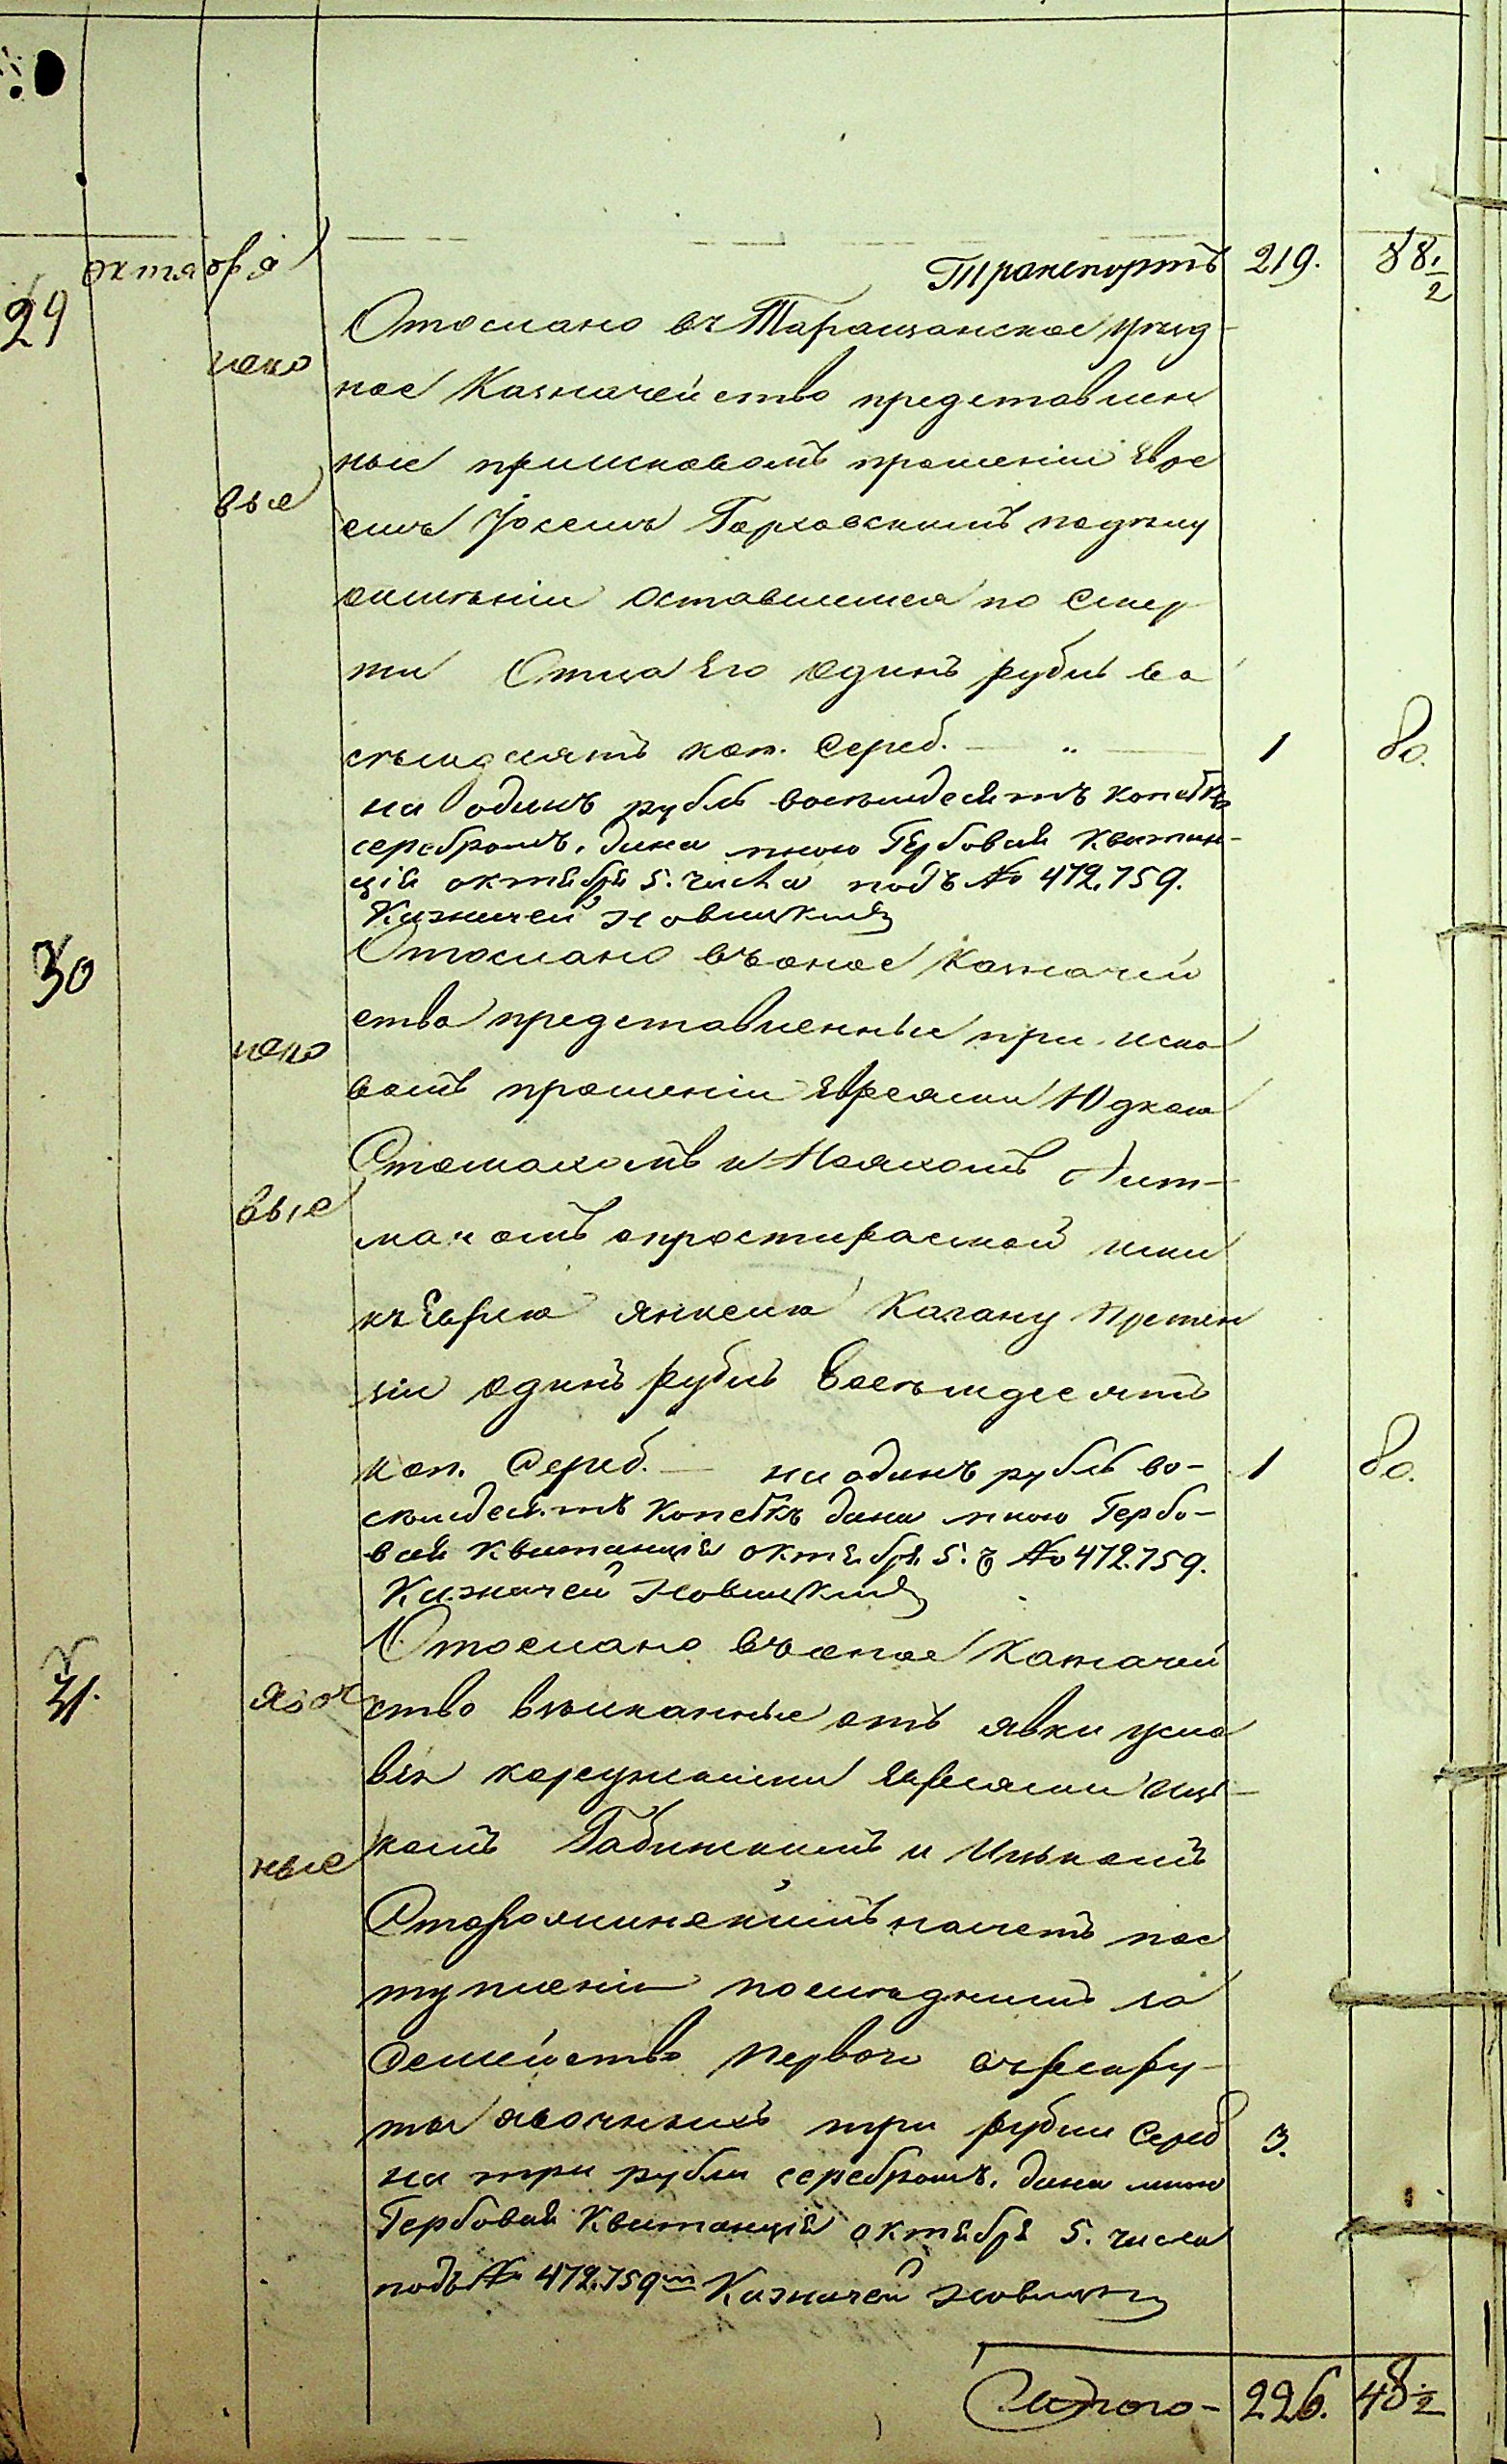 Октября
Транспортъ 219. 88 1/2
29
Отослано въ Таращанское уѣзд-
иско ное Казначейство представлен
ные при исковомъ прошеніи Евре
выя емъ Іосемъ Горховскимъ
оимѣніи оставшемся по смер
ти Отца Его одинъ рубль во
съмдесятъ коп. Сереб. — „ — 1 80.
на одинъ рубль восемьдесятъ копѣекъ
серебромъ. дана мною Гербовая Квитан-
ція октября 5. числа подъ № 472,759.
Казначей Новицкій
30 Отослано въ оное Казначей
иско ство представленные при иско
вомъ прошеніи Евреями Юдкою
и Мошкомъ Лит-
выя маномъ опростираемой ими
къ Еврею Янкелю Кагану претен
зіи одинъ рубль восемьдесятъ
коп. Сереб. — на одинъ рубль во- 1 80.
семьдесятъ Копѣекъ дана мною Гербо-
вая Квитанція октября 5. ч № 472.759.
Казначей Новицкій
31. Отослано въ оное Казначей
явоч ство взысканные отъ явки усло
вія Евреями Иц-
ные комъ и Ицькомъ
насчетъ пос
тупленіи послѣднимъ за
Семейство перваго въ рекру-
ты явочныхъ три рубли Сереб 3.
на три рубли серебромъ. дана мною
Гербовая Квитанція октября 5. числа
подъ № 472.759 m Казначей Новицкій
Итого — 226. 48 1/2